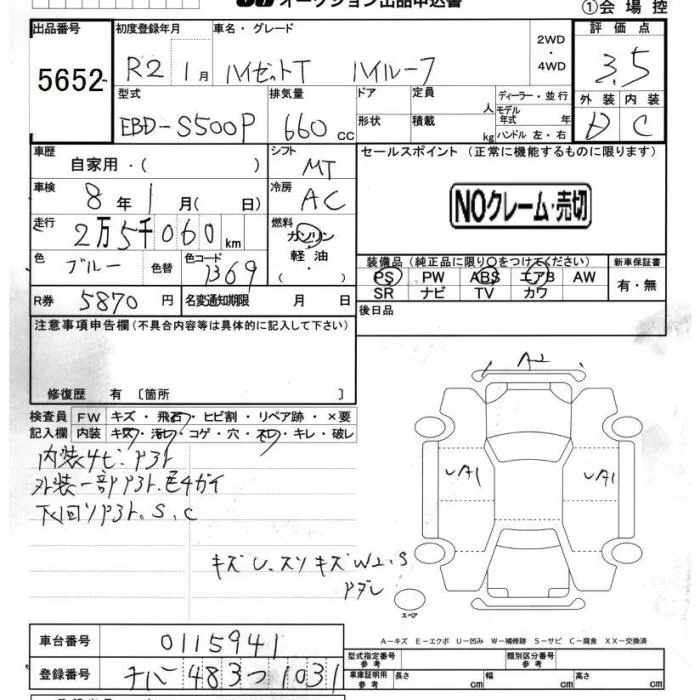 オークション出品申込書 ①会場控
出品番号 初度登録年月 車名・グレード 2WD・4WD 評価点
5652 R2 1月 ハイゼットT ハイルーフ 3.5
型式 排気量 ドア 定員 人 ディーラー・並行 外装 内装
EBD-S500P 660cc 形状 積載 kg モデル年式 年 ハンドル 左・右 D C
車歴 自家用・( ) シフト MT セールスポイント (正常に機能するものに限ります)
車検 8年1月( 日) 冷房 AC
NOクレーム・売切
走行 2万5千060km 燃料 ガソリン 軽油・
色 ブルー 色替 色コード B69
装備品(純正品に限り○をつけてください) 新車保証書
PS PW ABS エアB AW 有・無
SR ナビ TV カワ
R券 5870円 名変通知期限 月 日 後日品
注意事項申告欄(不具合内容等は具体的に記入して下さい)
修復歴 有〔箇所 〕
検査員記入欄 FW キズ・飛石・ヒビ割・リペア跡・×要
内装 キズ・汚れ・コゲ・穴・スレ・キレ・破レ
内装サビ.アト
外装一部アト.色チガイ
下回りアト.S,C
A2
UA1 UA1
キズ U.スリキズ W2.S
アタレ
スペア
A-キズ E-エクボ U-凹み W-補修跡 S-サビ C-腐食 XX-交換済
車台番号 0115941
型式指定番号 参考 類別区分番号 参考
登録番号 483つ1031
車庫証明用 参考 長さ cm 幅 cm 高さ cm